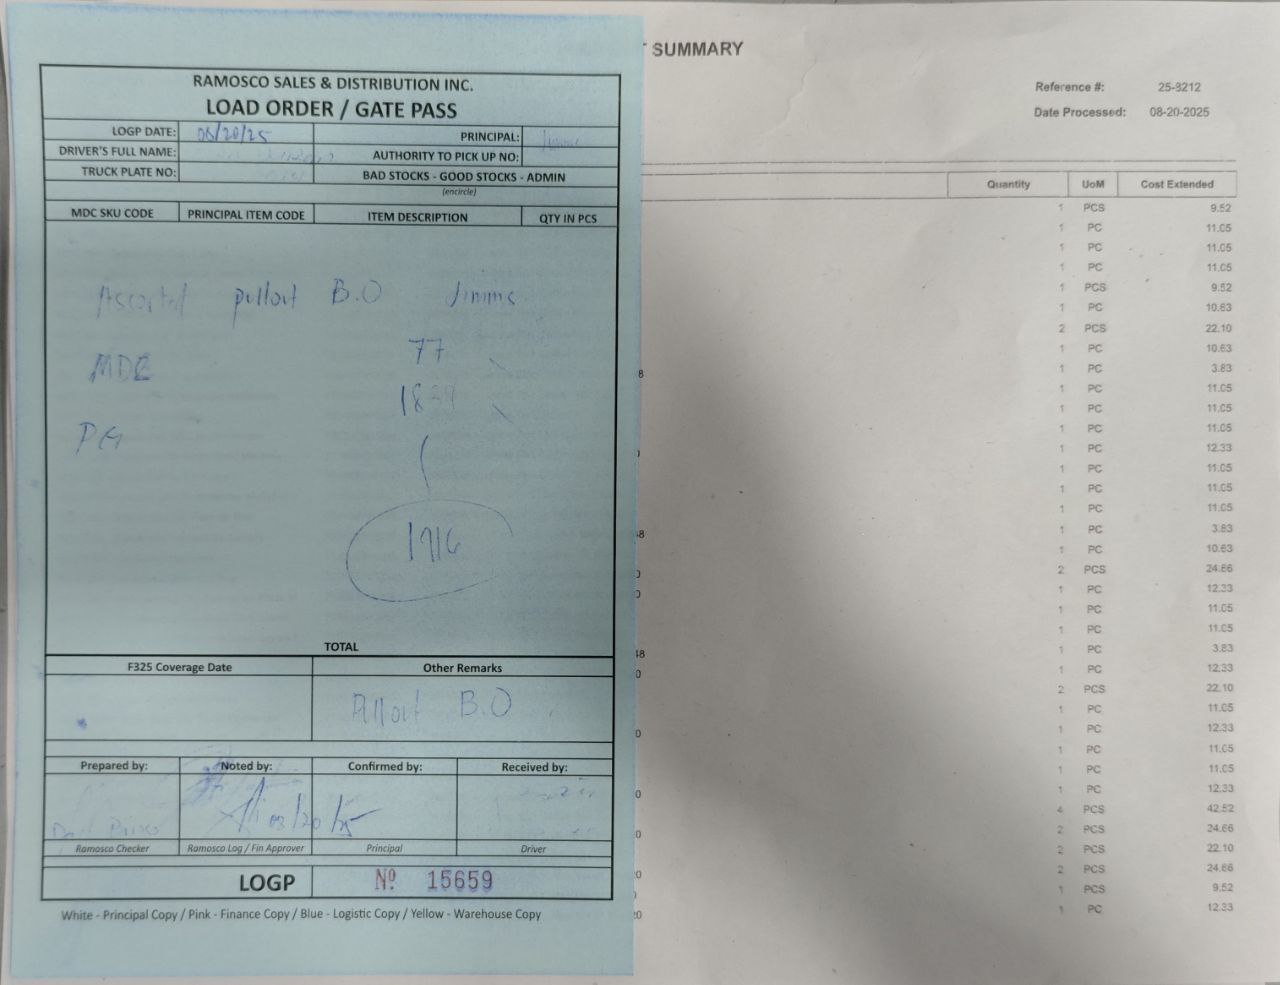 RAMOSCO SALES & DISTRIBUTION INC.
LOAD ORDER / GATE PASS
LOGP DATE: 08/20/25 PRINCIPAL:
DRIVER'S FULL NAME: AUTHORITY TO PICK UP NO:
TRUCK PLATE NO: BAD STOCKS - GOOD STOCKS - ADMIN
(encircle)
MDC SKU CODE PRINCIPAL ITEM CODE ITEM DESCRIPTION QTY IN PCS
pullout B.O
77
MDC
PG
1916
TOTAL
F325 Coverage Date Other Remarks
Pullout B.O
Prepared by: Noted by: Confirmed by: Received by:
08/20/25
Ramosco Checker Ramosco Log / Fin Approver Principal Driver
LOGP Nº 15659
White - Principal Copy / Pink - Finance Copy / Blue - Logistic Copy / Yellow - Warehouse Copy
SUMMARY
Reference #: 25-8212
Date Processed: 08-20-2025
Quantity UoM Cost Extended
1 PCS 9.52
1 PC 11.05
1 PC 11.05
1 PC 11.05
1 PCS 9.52
1 PC 10.63
2 PCS 22.10
1 PC 10.63
1 PC 3.83
1 PC 11.05
1 PC 11.05
1 PC 11.05
1 PC 12.33
1 PC 11.05
1 PC 11.05
1 PC 11.05
1 PC 3.83
1 PC 10.63
2 PCS 24.66
1 PC 12.33
1 PC 11.05
1 PC 11.05
1 PC 3.83
1 PC 12.33
2 PCS 22.10
1 PC 11.05
1 PC 12.33
1 PC 11.05
1 PC 11.05
1 PC 12.33
4 PCS 42.52
2 PCS 24.66
2 PCS 22.10
2 PCS 24.66
1 PCS 9.52
1 PC 12.33